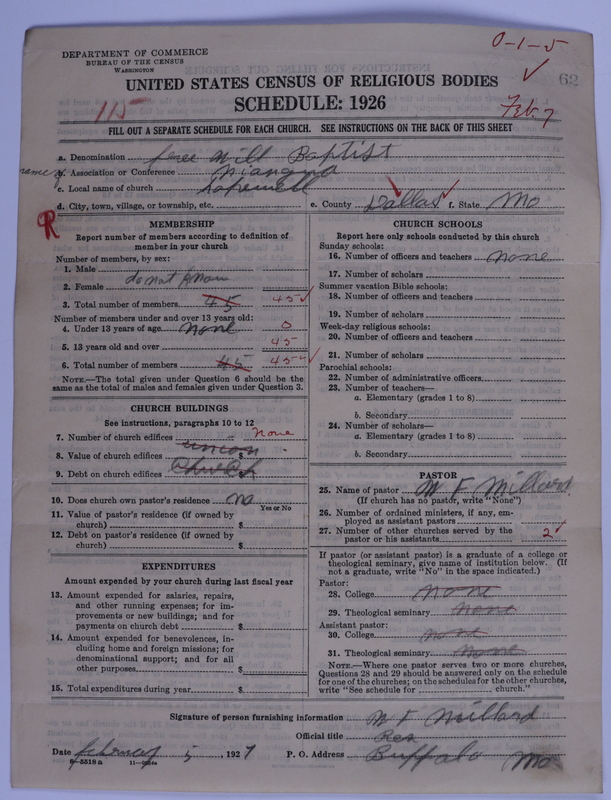 DEPARTMENT OF COMMERCE
BUREAU OF THE CENSUS
WASHINGTON
0-1-5
62
UNITED STATES CENSUS OF RELIGIOUS BODIES
SCHEDULE: 1926
115
Feb. 7
FILL OUT A SEPARATE SCHEDULE FOR EACH CHURCH. SEE INSTRUCTIONS ON THE BACK OF THIS SHEET
a. Denomination Free Will Baptist
b. Association or Conference Niangua
c. Local name of church Hopewell
d. City, town, village, or township, etc. e. County Dallas f. State Mo
R
MEMBERSHIP
Report number of members according to definition of
member in your church
Number of members, by sex:
1. Male
do not know
2. Female
3. Total number of members 45 45
Number of members under and over 13 years old:
4. Under 13 years of age none 0
5. 13 years old and over 45
6. Total number of members 45 45
NOTE.—The total given under Question 6 should be the
same as the total of males and females given under Question 3.
CHURCH BUILDINGS
See instructions, paragraphs 10 to 12
7. Number of church edifices none
8. Value of church edifices union $
9. Debt on church edifices Church $
10. Does church own pastor's residence? no
Yes or No
11. Value of pastor's residence (if owned by
church) $
12. Debt on pastor's residence (if owned by
church) $
EXPENDITURES
Amount expended by your church during last fiscal year
13. Amount expended for salaries, repairs,
and other running expenses; for im-
provements or new buildings; and for
payments on church debt $
14. Amount expended for benevolences, in-
cluding home and foreign missions; for
denominational support; and for all
other purposes $
15. Total expenditures during year $
CHURCH SCHOOLS
Report here only schools conducted by this church
Sunday schools:
16. Number of officers and teachers none
17. Number of scholars
Summer vacation Bible schools:
18. Number of officers and teachers
19. Number of scholars
Week-day religious schools:
20. Number of officers and teachers
21. Number of scholars
Parochial schools:
22. Number of administrative officers
23. Number of teachers—
a. Elementary (grades 1 to 8)
b. Secondary
24. Number of scholars—
a. Elementary (grades 1 to 8)
b. Secondary
PASTOR
25. Name of pastor M F Millard
(If church has no pastor, write "None")
26. Number of ordained ministers, if any, em-
ployed as assistant pastors
27. Number of other churches served by the
pastor or his assistants 2
If pastor (or assistant pastor) is a graduate of a college or
theological seminary, give name of institution below. (If
not a graduate, write "No" in the space indicated.)
Pastor:
28. College none
29. Theological seminary none
Assistant pastor:
30. College none
31. Theological seminary none
NOTE.—Where one pastor serves two or more churches,
Questions 28 and 29 should be answered only on the schedule
for one of the churches; on the schedules for the other churches,
write "See schedule for church."
Signature of person furnishing information M F Millard
Official title
Date February 5, 1927 P. O. Address Buffalo Mo